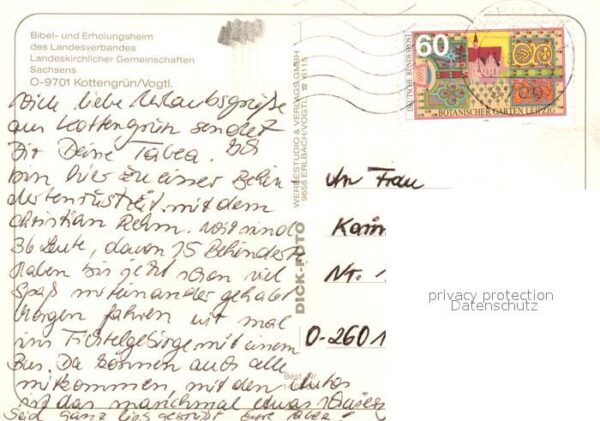 Bibel- und Erholungsheim
des Landesverbandes
Landeskirchlicher Gemeinschaften
Sachsens
O-9701 Kottengrün/Vogtl.
liebe Urlaubsgrüße
aus Kottengrün sendet
Dir Deine Tabea.
bin hier zu einer Behin
dertenrüstzeit mit dem
Christian Rehm. Wir sind
36 Leute, davon 15 Behinderte
Haben bis jetzt schon viel
Spaß miteinander gehabt
Morgen fahren wir mal
ins Fichtelgebirge mit einem
Bus. Da können auch alle
mitkommen, mit den Autos
ist das manchmal etwas
Seid ganz lieb gegrüßt Eure Tabea!
WERBESTUDIO & VERLAGS GMBH
9658 ERLBACH/VOGTL. ☎ 6115
DICK-FOTO
Best.-Nr.
60
DEUTSCHE BUNDESPOST
BOTANISCHER GARTEN LEIPZIG
An Frau
Karin
Nr. 1
O-2601
privacy protection
Datenschutz